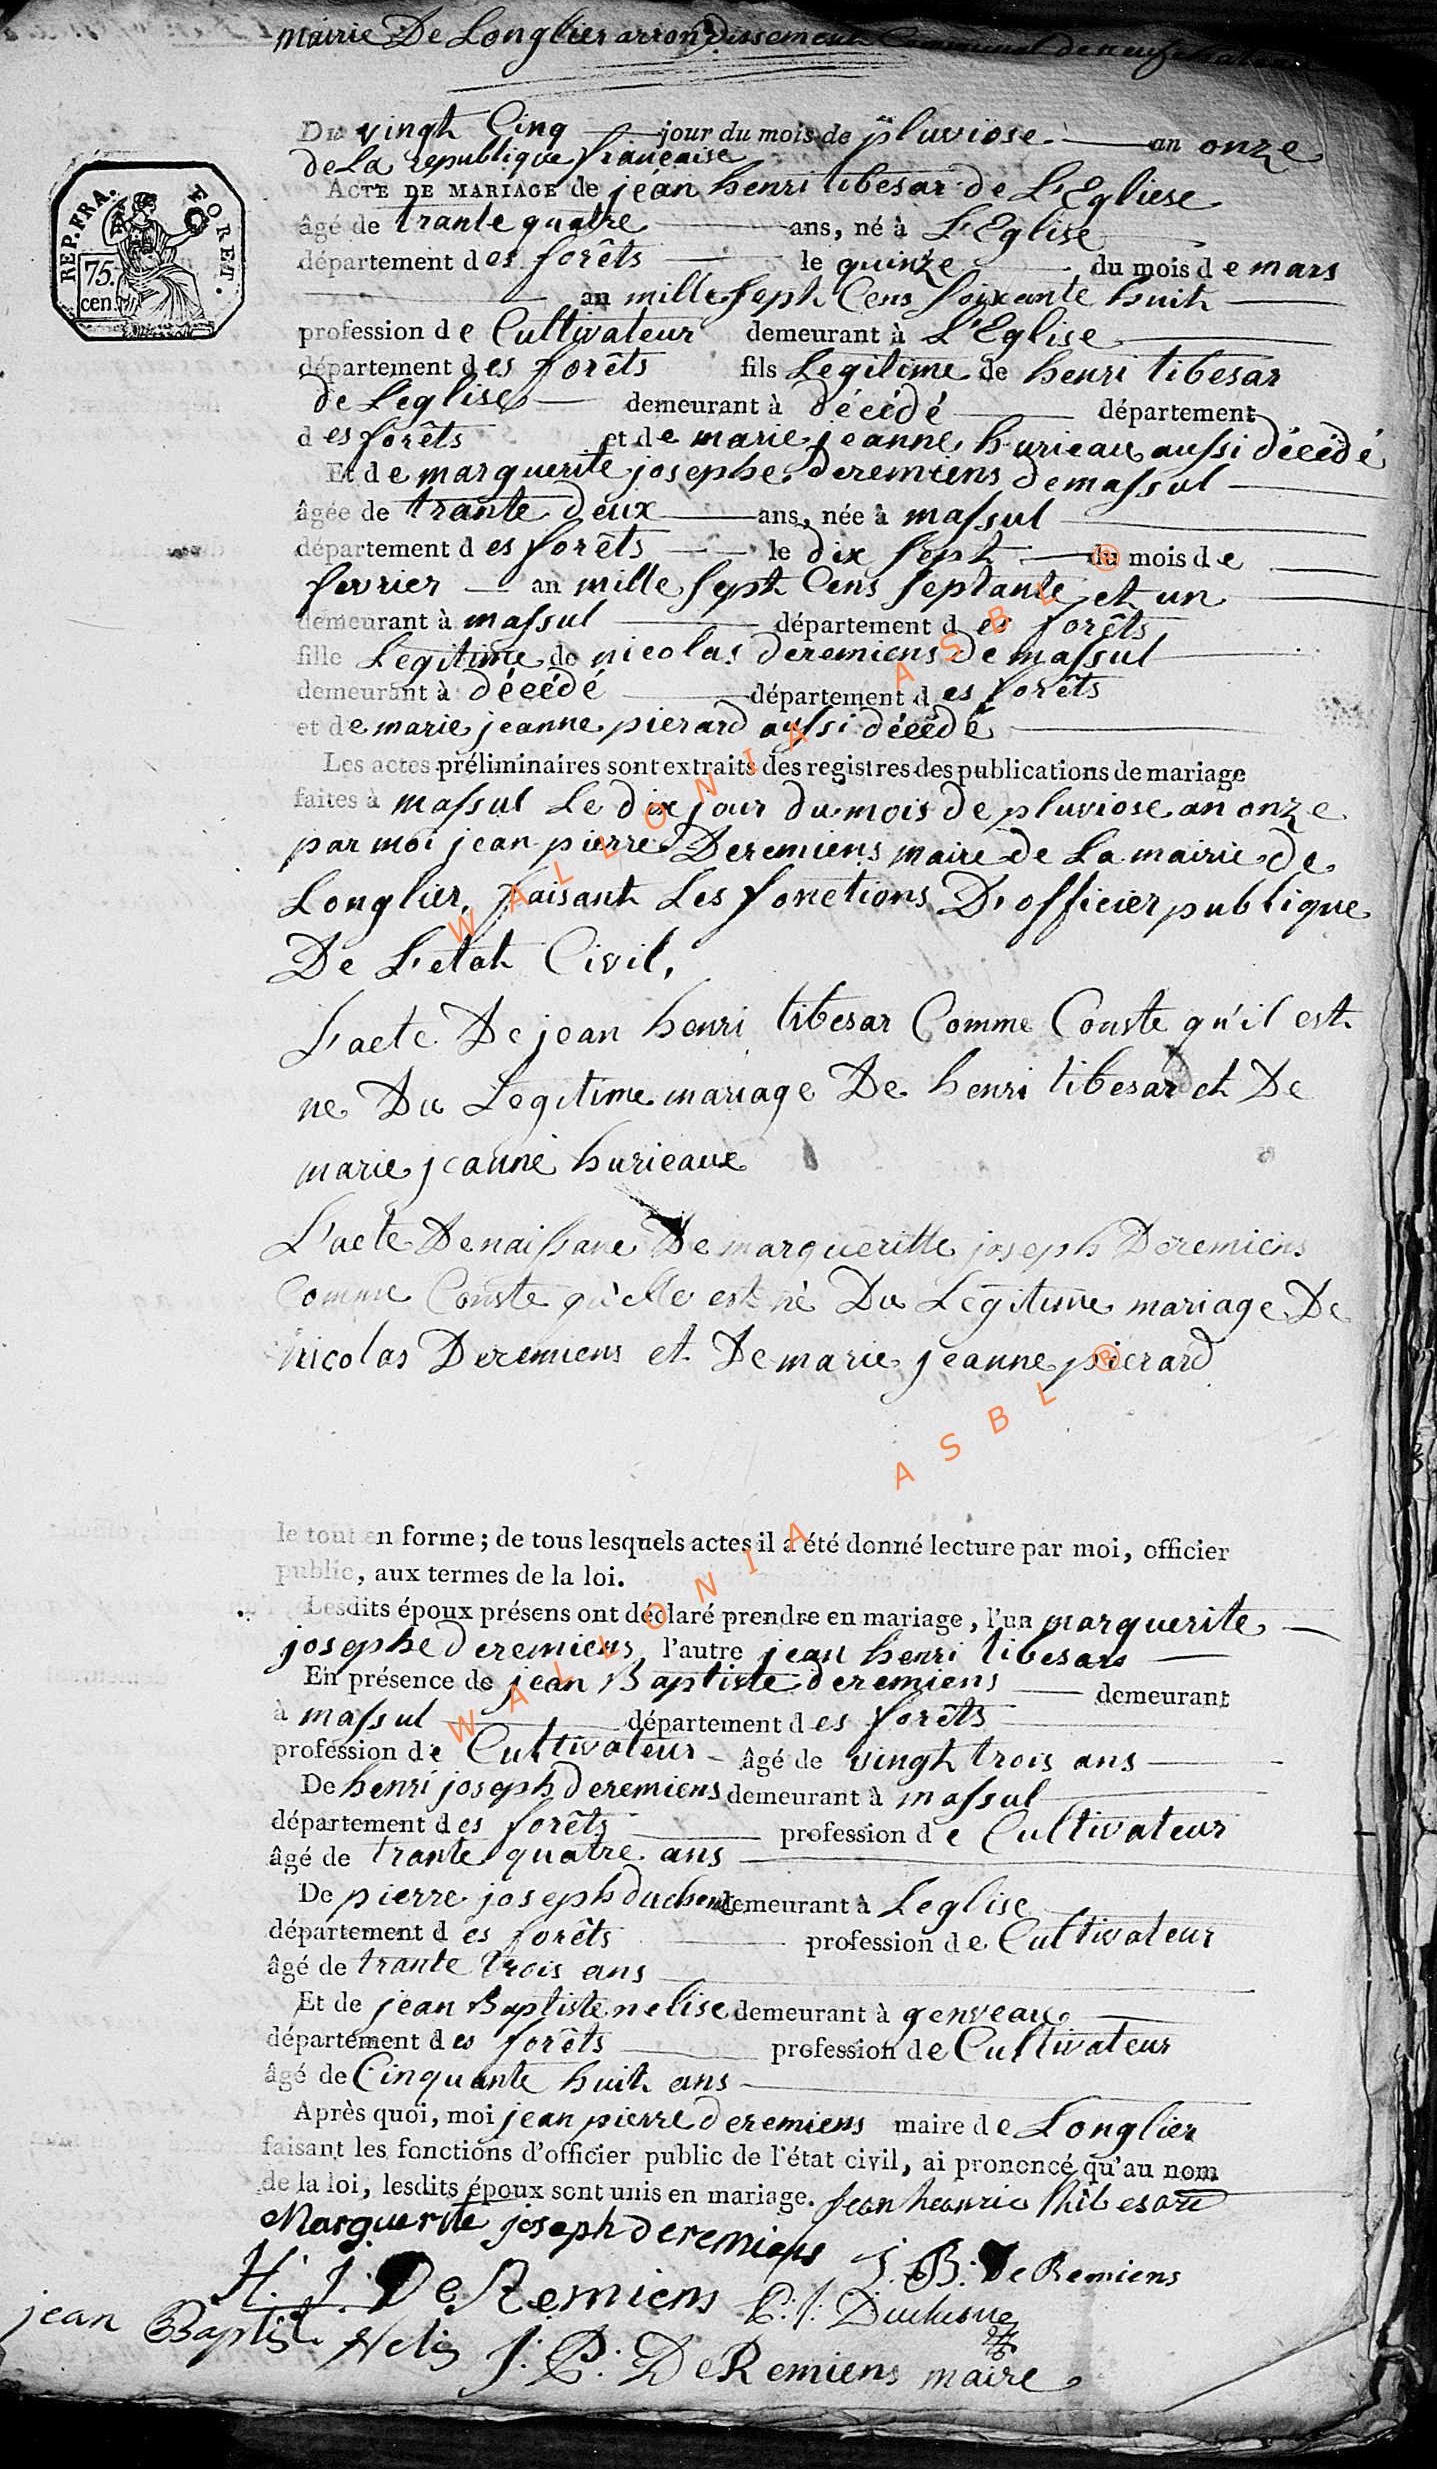 mairie De Longlier arrondissement Communal de neufchateau
Du vingt Cinq jour du mois de pluviose an onze
de La republique française
REP. FRA.
FORET.
75.
cen.
ACTE DE MARIAGE de jean henri tibesar de L'Egliese
âgé de trante quatre ans, né à L'Eglise
département des forêts le quinze du mois de mars
an mille sept Cens soixante huit
profession de Cultivateur demeurant à L'Eglise
département des forêts fils Legitime de henri tibesar
de Leglise demeurant à décédé département
des forêts et de marie jeanne hurieaux aussi décédé
Et de marguerite josephe deremiens de massul
âgée de trante deux ans, née à massul
département des forêts le dix sept du mois de
fevrier an mille sept Cens septante et un
demeurant à massul département des forêts
fille Legitime de nicolas deremiens de massul
demeurant à décédé département des forêts
et de marie jeanne pierard aussi décédé
Les actes préliminaires sont extraits des registres des publications de mariage
faites à massul Le dix jour du mois de pluviose an onze
par moi jean pierre Deremiens maire de La mairie de
Longlier, faisant Les fonctions D'officier publique
De L'etat Civil,
L'acte De jean henri tibesar Comme Conste qu'il est
ne Du Legitime mariage De henri tibesar et De
marie jeanne hurieaux
L'acte De naissane De margueritte joseph Deremiens
Comme Conste qu'elle est né Du Légitime mariage De
nicolas Deremiens et De marie jeanne pierard
le tout en forme ; de tous lesquels actes il a été donné lecture par moi, officier
public, aux termes de la loi.
Lesdits époux présens ont déclaré prendre en mariage, l'un marguerite
josephe deremiens l'autre jean henri tibesar
En présence de jean Baptiste deremiens demeurant
à massul département des forêts
profession de Cultivateur âgé de vingt trois ans
De henri joseph deremiens demeurant à massul
département des forêts profession de Cultivateur
âgé de trante quatre ans
De pierre joseph duchene demeurant à Leglise
département des forêts profession de Cultivateur
âgé de trante trois ans
Et de jean Baptiste nelise demeurant à genveaux
département des forêts profession de Cultivateur
âgé de Cinquante huit ans
Après quoi, moi jean pierre deremiens maire de Longlier
faisant les fonctions d'officier public de l'état civil, ai prononcé qu'au nom
de la loi, lesdits époux sont unis en mariage. Jean heanrie thibesare
Marguerite joseph deremiens J. B. DeRemiens
H. J. DeRemiens P. J. Duchesne
jean Baptist Nelis J. P. DeRemiens maire
WALLONIA ASBL ®
WALLONIA ASBL ®